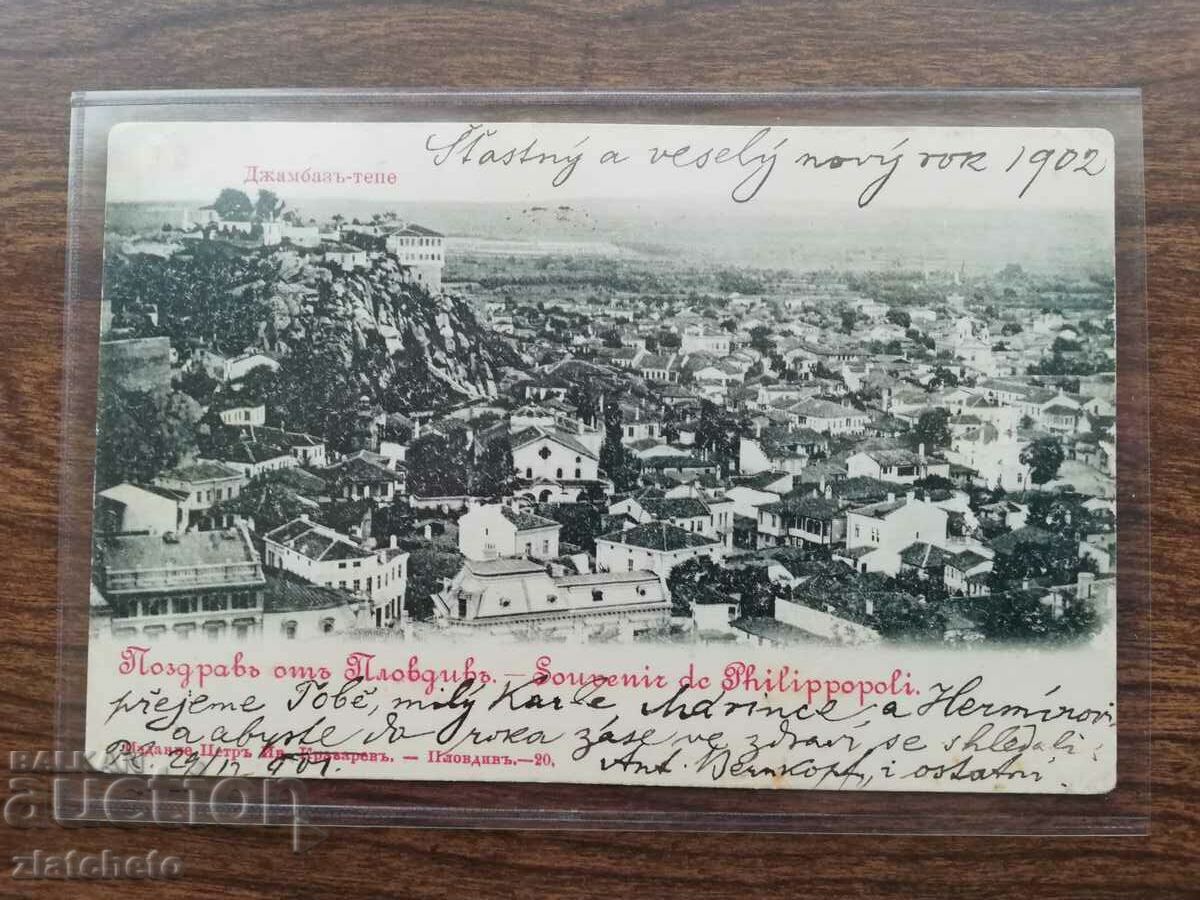 Šťastný a veselý nový rok 1902
Джамбазъ-тепе
Поздравъ отъ Пловдивъ. — Souvenir de Philippopoli.
přejeme Tobě, milý Karle Marince a Hermínovi
a abyste do roka záse ve zdraví se shledali
Издание Петръ Ив. — Пловдивъ.—20.
29/12 901.
Ant. Bernkopf, i ostatní
BALKAN
auction
zlatcheto